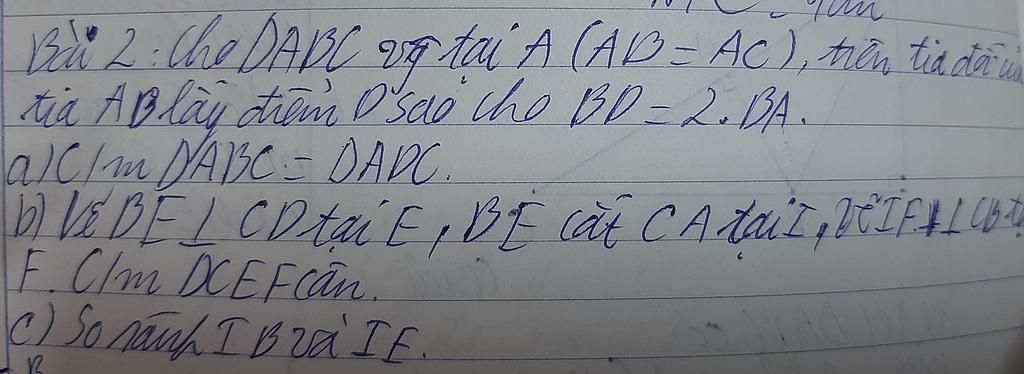 Bài 2: Cho DABC vg tại A (AB = AC), trên tia đối của
tia AB lấy điểm D sao cho BD = 2. BA.
a) C/m DABC = DADC.
b) Vẽ BE ⊥ CD tại E, BE cắt CA tại I, Vẽ IF ⊥ CB tại
F. C/m DCEF cân.
c) So sánh IB và IE.